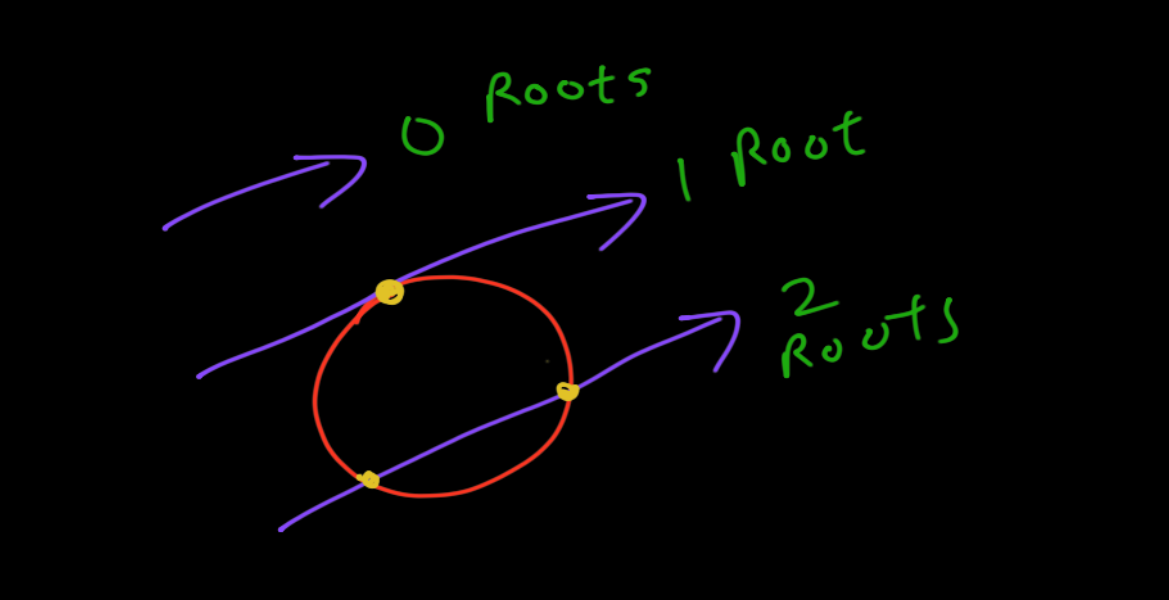 0 Roots
1 Root
2
Roots